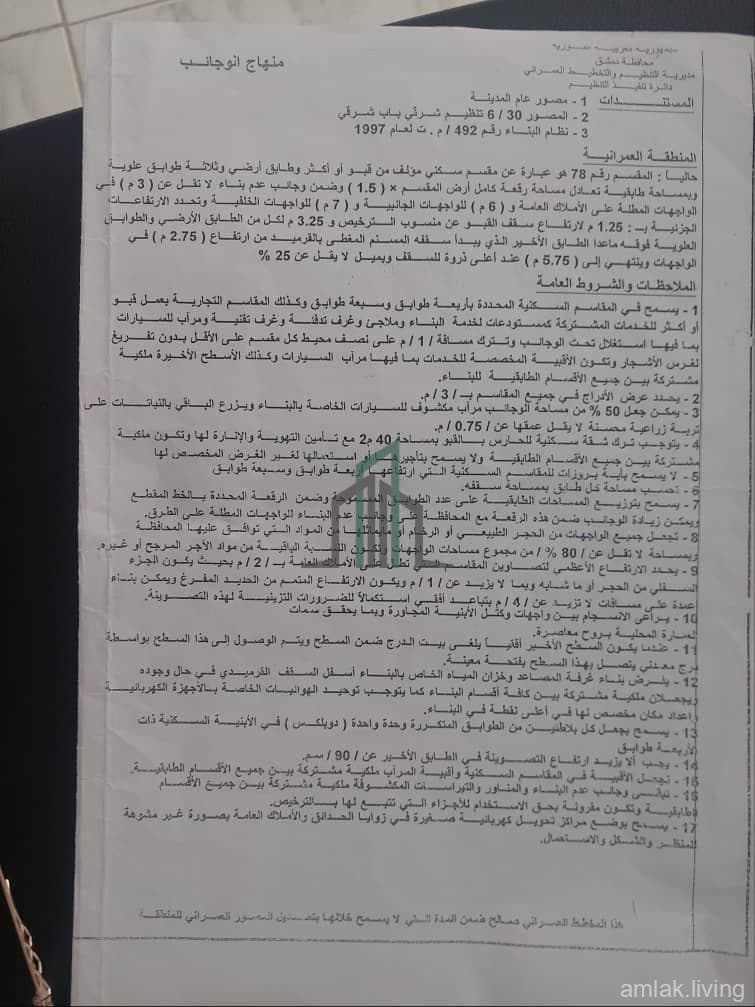 الجمهورية العربية السورية
محافظة دمشق
مديرية التنظيم والتخطيط العمراني
دائرة تنفيذ التنظيم
منهاج الوجائب
المستندات 1 - مصور عام المدينة
2 - المصور 30 / 6 تنظيم شرقي باب شرقي
3 - نظام البناء رقم 492 / م . ت لعام 1997
المنطقة العمرانية
حالياً : المقسم رقم 78 هو عبارة عن مقسم سكني مؤلف من قبو أو أكثر وطابق أرضي وثلاثة طوابق علوية
وبمساحة طابقية تعادل مساحة رقعة كامل أرض المقسم × ( 1.5 ) وضمن وجائب عدم بناء لا تقل عن ( 3 م ) في
الواجهات المطلة على الأملاك العامة و ( 6 م ) للواجهات الجانبية و ( 7 م ) للواجهات الخلفية وتحدد الارتفاعات
الجزئية بـ : 1.25 م لارتفاع سقف القبو عن منسوب الترخيص و 3.25 م لكل من الطابق الأرضي والطوابق
العلوية فوقه ماعدا الطابق الأخير الذي يبدأ سقفه المسنم المغطى بالقرميد من ارتفاع ( 2.75 م ) في
الواجهات وينتهي إلى ( 5.75 م ) عند أعلى ذروة للسقف وبميل لا يقل عن 25 %
الملاحظات والشروط العامة
1 - يسمح في المقاسم السكنية المحددة بأربعة طوابق وسبعة طوابق وكذلك المقاسم التجارية بعمل قبو
أو أكثر للخدمات المشتركة كمستودعات لخدمة البناء وملاجئ وغرف تدفئة وغرف تقنية ومرآب للسيارات
بما فيها استغلال تحت الوجائب وتترك مسافة / 1 / م على نصف محيط كل مقسم على الأقل بدون تفريغ
لغرس الأشجار وتكون الأقبية المخصصة للخدمات بما فيها مرآب السيارات وكذلك الأسطح الأخيرة ملكية
مشتركة بين جميع الأقسام الطابقية للبناء.
2 - يحدد عرض الأدراج في جميع المقاسم بـ / 3 / م.
3 - يمكن جعل 50 % من مساحة الوجائب مرآب مكشوف للسيارات الخاصة بالبناء ويزرع الباقي بالنباتات على
تربة زراعية محسنة لا يقل عمقها عن / 0.75 / م.
4 - يتوجب ترك شقة سكنية للحارس بالقبو بمساحة 40 م2 مع تأمين التهوية والإنارة لها وتكون ملكية
مشتركة بين جميع الأقسام الطابقية ولا يسمح بتأجيرها أو استعمالها لغير الغرض المخصص لها
5 - لا يسمح بأية بروزات للمقاسم السكنية التي ارتفاعها أربعة طوابق وسبعة طوابق
6 - تحسب مساحة كل طابق بمساحة سقفه.
7 - يسمح بتوزيع المساحات الطابقية على عدد الطوابق المسموحة وضمن الرقعة المحددة بالخط المقطع
ويمكن زيادة الوجائب ضمن هذه الرقعة مع المحافظة على وجائب عدم البناء للواجهات المطلة على الطرق.
8 - تجعل جميع الواجهات من الحجر الطبيعي أو الرخام أو مايماثلها من المواد التي توافق عليها المحافظة
وبمساحة لا تقل عن / 80 % / من مجموع مساحات الواجهات وتكون النسبة الباقية من مواد الآجر المرجح أو غيره.
9 - يحدد الارتفاع الأعظمي لتصاوين المقاسم التي تطل على الأملاك العامة بـ / 2 / م بحيث يكون الجزء
السفلي من الحجر أو ما شابه وبما لا يزيد عن / 1 / م ويكون الارتفاع المتمم من الحديد المفرغ ويمكن بناء
أعمدة على مسافات لا تزيد عن / 4 / م بتباعد أفقي استكمالاً للضرورات التزينية لهذه التصوينة.
10 - يراعى الانسجام بين واجهات وكتل الأبنية المجاورة وبما يحقق سمات
العمارة المحلية بروح معاصرة.
11 - عندما يكون السطح الأخير أفقياً يلغى بيت الدرج ضمن السطح ويتم الوصول إلى هذا السطح بواسطة
درج معدني يتصل بهذا السطح بفتحة معينة.
12 - يفرض بناء غرفة المصاعد وخزان المياه الخاص بالبناء أسفل السقف القرميدي في حال وجوده
ويجعلان ملكية مشتركة بين كافة أقسام البناء كما يتوجب توحيد الهوائيات الخاصة بالأجهزة الكهربائية
وإعداد مكان مخصص لها في أعلى نقطة في البناء.
13 - يسمح بجعل كل بلاطتين من الطوابق المتكررة وحدة واحدة ( دوبلكس ) في الأبنية السكنية ذات
الأربعة طوابق
14 - يجب ألا يزيد ارتفاع التصوينة في الطابق الأخير عن / 90 / سم.
15 - تجعل الأقبية في المقاسم السكنية وأقبية المرآب ملكية مشتركة بين جميع الأقسام الطابقية.
16 - تبقى وجائب عدم البناء والمناور والتيراسات المكشوفة ملكية مشتركة بين جميع الأقسام
الطابقية وتكون مقرونة بحق الاستخدام للأجزاء التي تتبع لها بالترخيص.
17 - يسمح بوضع مراكز تحويل كهربائية صغيرة في زوايا الحدائق والأملاك العامة بصورة غير مشوهة
للمنظر والشكل والاستعمال.
هذا المخطط العمراني صالح ضمن المدة التي لا يسمح خلالها بتعديل المصور العمراني للمنطقة
amlak.living